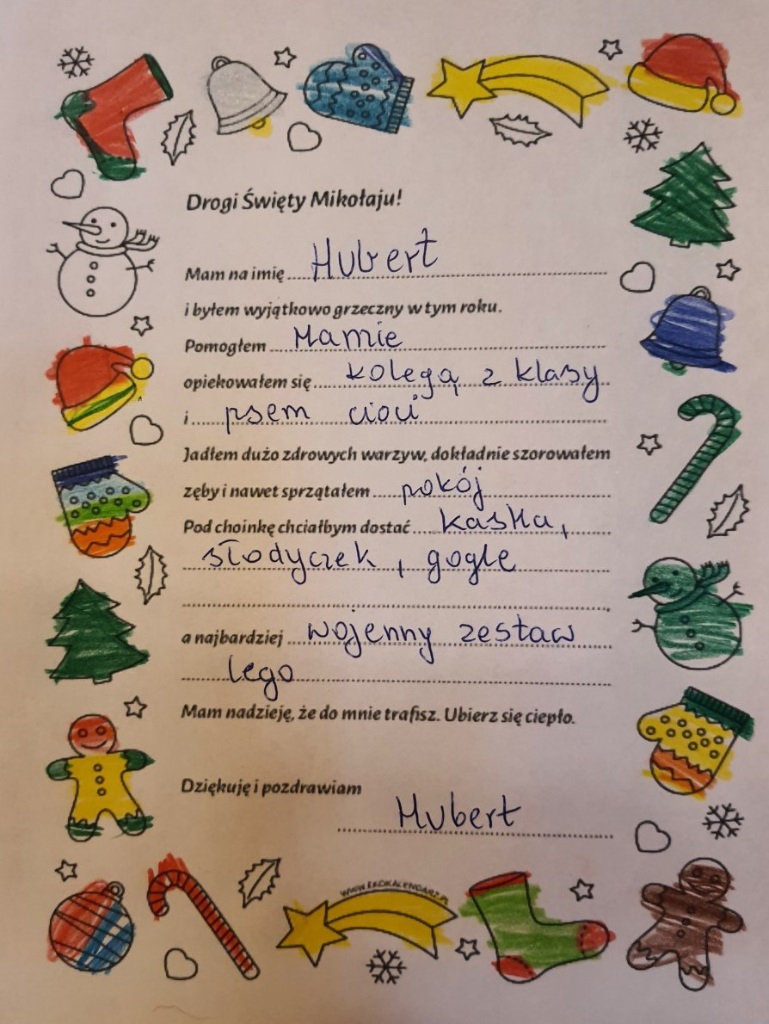 Drogi Święty Mikołaju!
Mam na imię Hubert
i byłem wyjątkowo grzeczny w tym roku.
Pomogłem Mamie
opiekowałem się kolegą z klasy
i psem cioci
Jadłem dużo zdrowych warzyw, dokładnie szorowałem
zęby i nawet sprzątałem pokój
Pod choinkę chciałbym dostać kaska,
słodyczek, gogle
a najbardziej wojenny zestaw
lego
Mam nadzieję, że do mnie trafisz. Ubierz się ciepło.
Dziękuję i pozdrawiam
Hubert
WWW.EKOKALENDARZ.PL